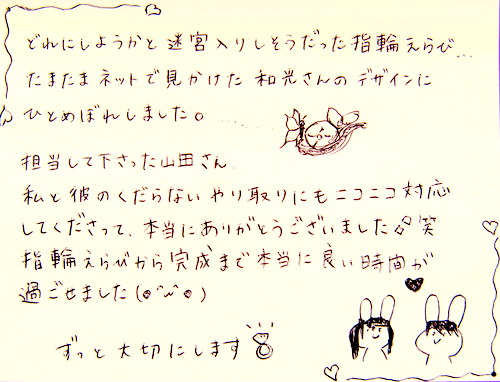 どれにしようかと迷宮入りしそうだった指輪えらび…
たまたまネットで見かけた和光さんのデザインに
ひとめぼれしました。
担当して下さった山田さん、
私と彼のくだらないやり取りにもニコニコ対応
してくださって、本当にありがとうございました 笑
指輪えらびから完成まで本当に良い時間が
過ごせました(๑˘ω˘๑)
ずっと大切にします